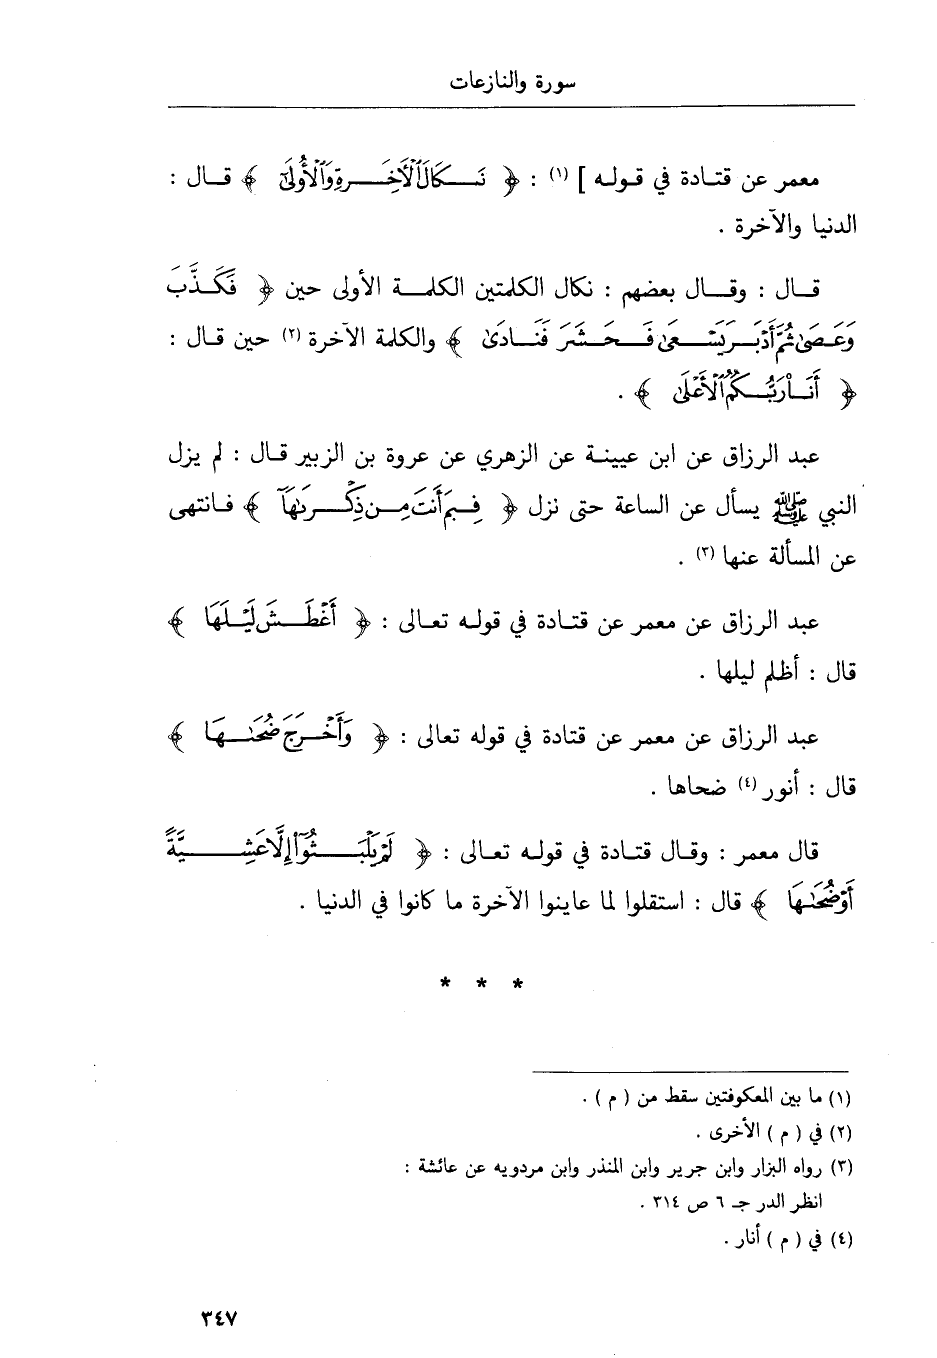 سورة والنازعات
معمر عن قتادة في قوله ] (١) : ﴿ نَكَالَ ٱلْأَخِرَةِ وَٱلْأُولَىٰٓ ﴾ قال :
الدنيا والآخرة .
قال : وقال بعضهم : نكال الكلمتين الكلمة الأولى حين ﴿ فَكَذَّبَ
وَعَصَىٰ ثُمَّ أَدْبَرَ يَسْعَىٰ فَحَشَرَ فَنَادَىٰ ﴾ والكلمة الآخرة (٢) حين قال :
﴿ أَنَا۠ رَبُّكُمُ ٱلْأَعْلَىٰ ﴾ .
عبد الرزاق عن ابن عيينة عن الزهري عن عروة بن الزبير قال : لم يزل
النبي ﷺ يسأل عن الساعة حتى نزل ﴿ فِيمَ أَنتَ مِن ذِكْرَىٰهَآ ﴾ فانتهى
عن المسألة عنها (٣) .
عبد الرزاق عن معمر عن قتادة في قوله تعالى : ﴿ أَغْطَشَ لَيْلَهَا ﴾
قال : أظلم ليلها .
عبد الرزاق عن معمر عن قتادة في قوله تعالى : ﴿ وَأَخْرَجَ ضُحَىٰهَا ﴾
قال : أنور (٤) ضحاها .
قال معمر : وقال قتادة في قوله تعالى : ﴿ لَمْ يَلْبَثُوٓا۟ إِلَّا عَشِيَّةً
أَوْ ضُحَىٰهَا ﴾ قال : استقلوا لما عاينوا الآخرة ما كانوا في الدنيا .
* * *
(١) ما بين المعكوفتين سقط من ( م ) .
(٢) في ( م ) الأخرى .
(٣) رواه البزار وابن جرير وابن المنذر وابن مردويه عن عائشة :
انظر الدر جـ ٦ ص ٣١٤ .
(٤) في ( م ) أنار .
٣٤٧